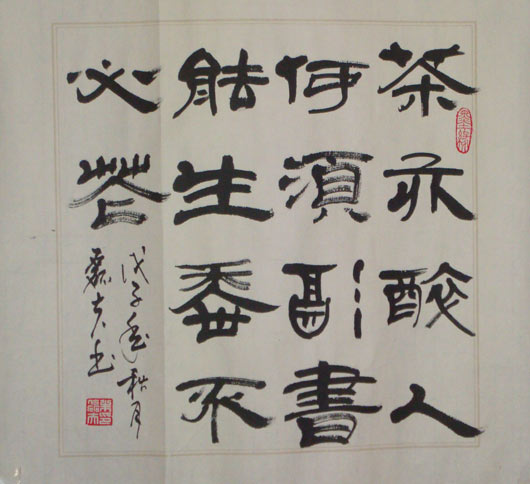 茶亦醉人
何須酒書
能生香不
必花
戊子年秋月